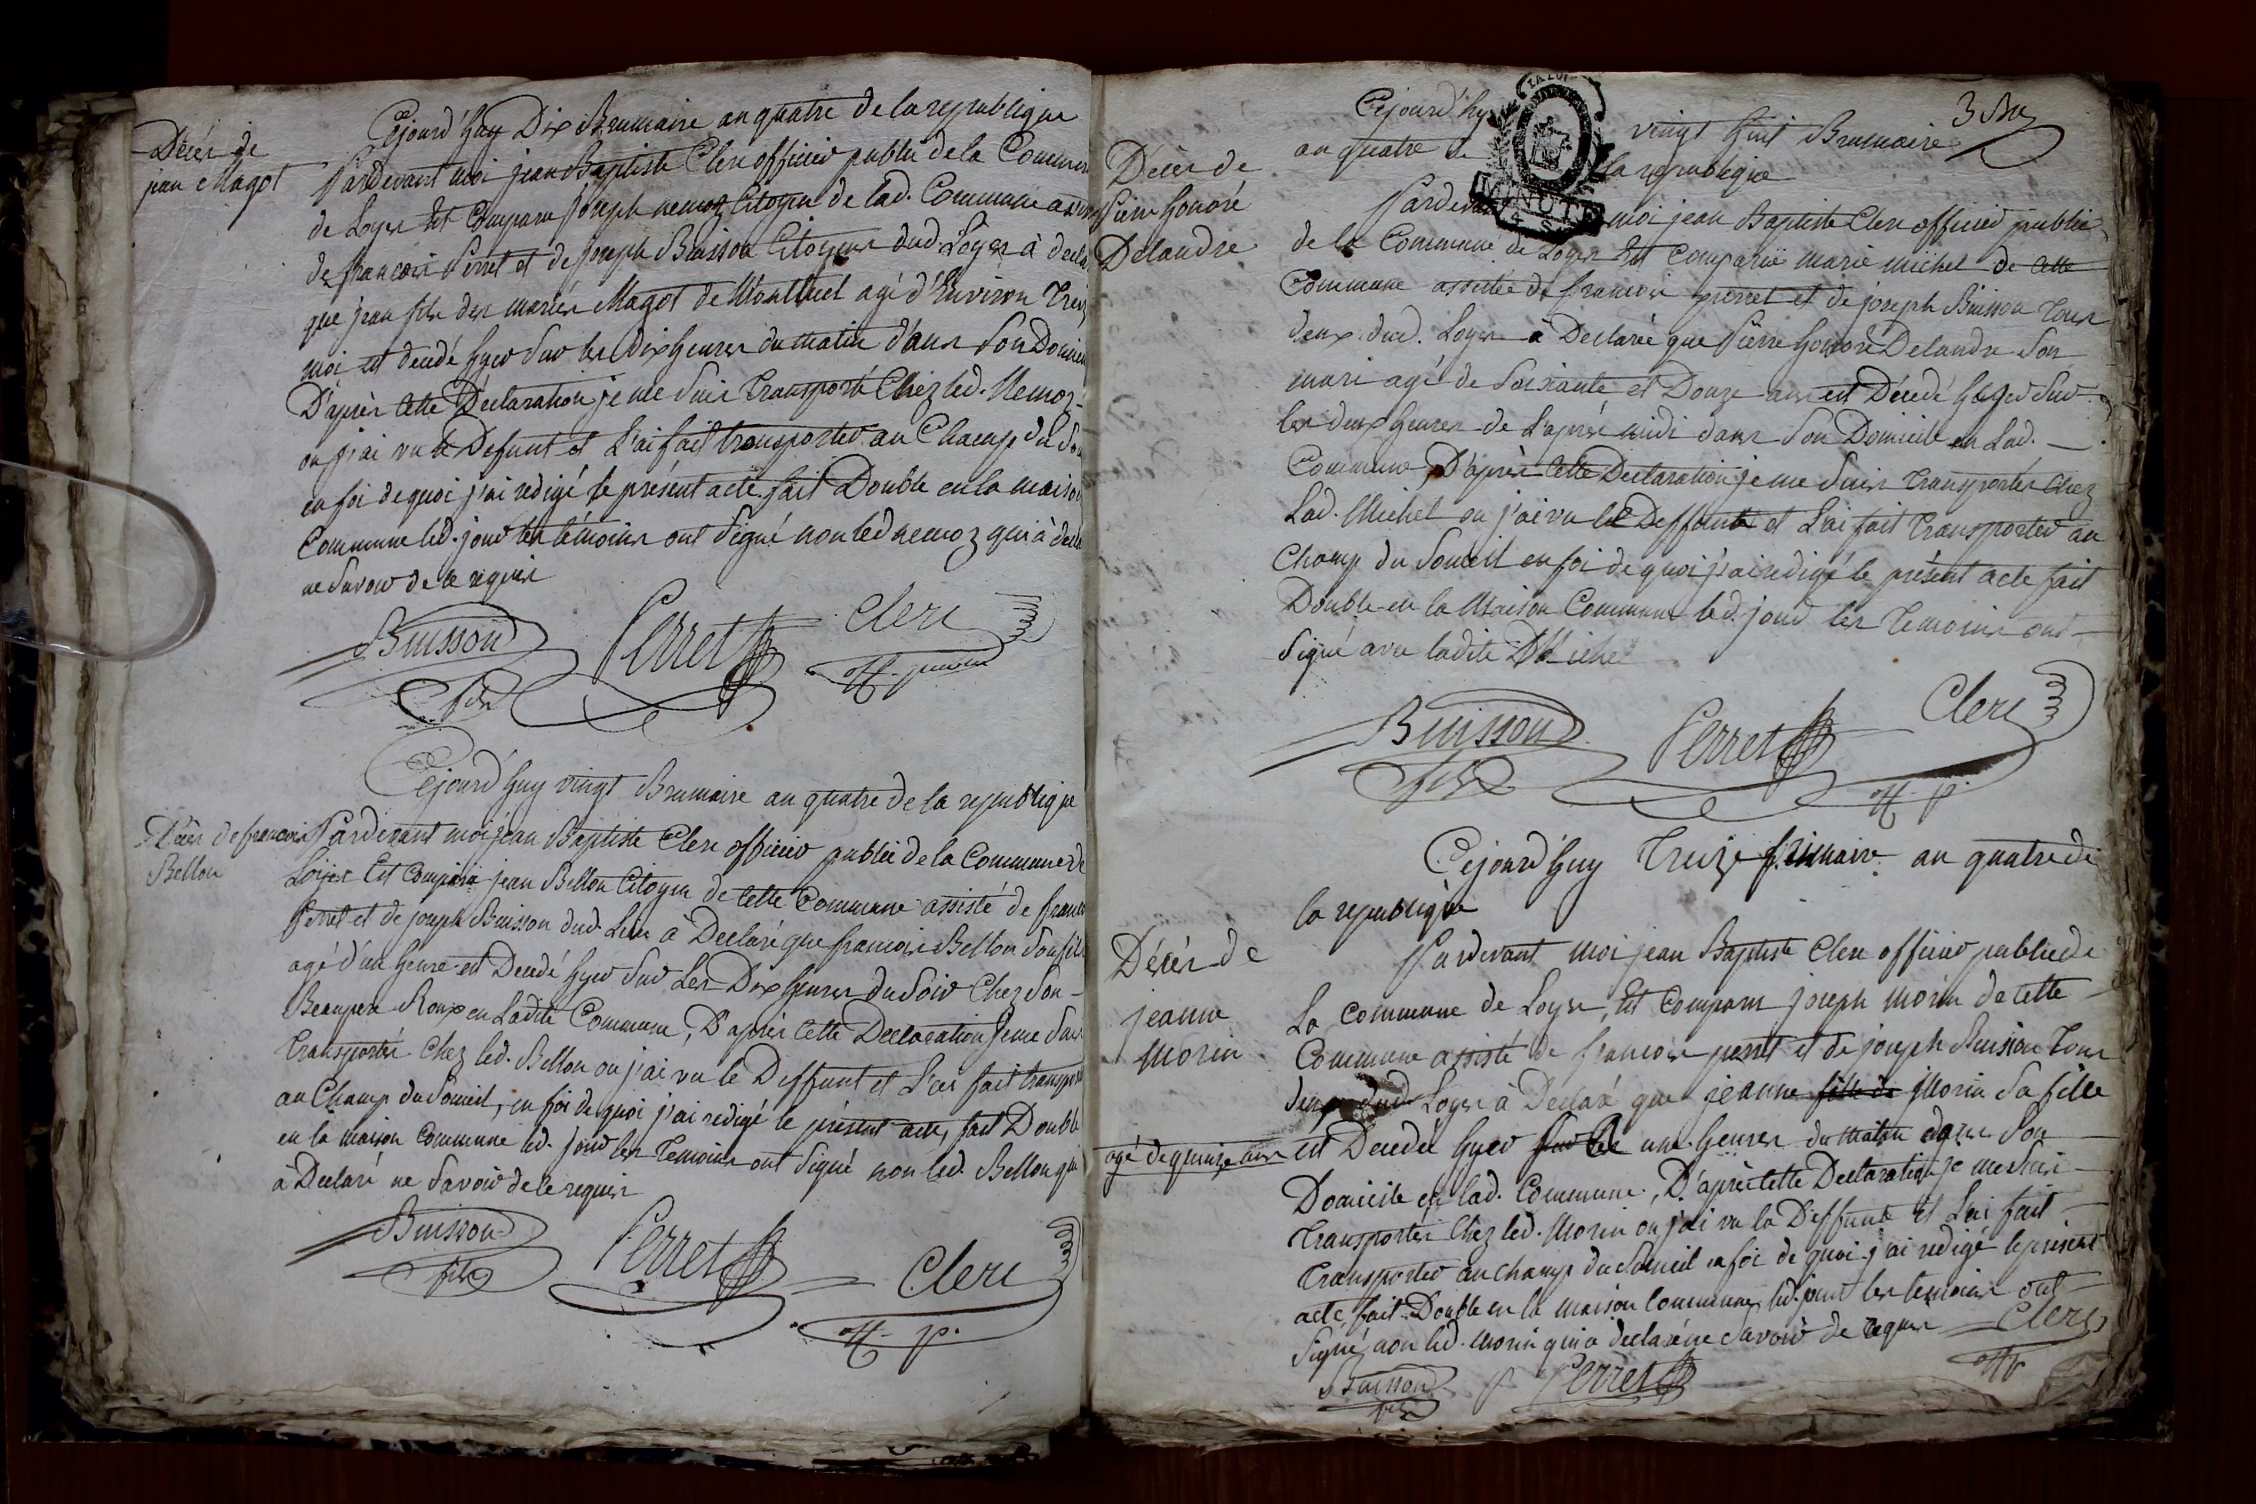 Décès de
jean Magot
Cejourd'huy Dix Brumaire an quatre de la republique
Pardevant moi jean Baptiste Clerc officier public de la Commun
de Loyes Est comparu joseph nemoz Citoyen de lad. Commune
de francois Perret et de joseph Buisson Citoyens dud. Loyes à decla
que jean fils des mariés Magot de Montluel agé d'Environ Treiz
moi est decedé hyer sur les dix heures du matin dans son Domici
D'après cette Déclaration je me suis transporté Chez led. Nemoz
ou j'ai vu le Defunt et L'ai fait transporter au Champ du So
en foi de quoi j'ai redigé le présent acte fait Double en la maison
Commune led. jour les témoins ont signé non led nemoz qui à décla
ne savoir de ce requis
Buisson fils Perret Clerc
off. public
Décès de francois
Bellon
Cejourd'huy vingt Brumaire an quatre de la republique
Pardevant moi jean Baptiste Clerc officier public de la Commune de
Loyes Est comparu jean Bellon Citoyen de cette Commune assisté de franc
Perret et de joseph Buisson dud. Lieu à Declaré que francois Bellon son fils
agé d'un heure est Decedé hyer sur Les Dix heures du soir Chez son
Beaupere Roux en Ladite Commune, D'après cette Declaration je me suis
transporté chez led. Bellon ou j'ai vu le Deffunt et L'ai fait transpor
au Champ du Someil, en foi de quoi j'ai redigé le présent acte, fait Double
en la maison commune led. jour les Temoins ont signé non led. Bellon qui
à Declaré ne savoir de ce requis
Buisson fils Perret Clerc
off. p.
3 Bu
Cejourd'hy vingt huit Brumaire
an quatre de la republique
LA LOI
MINUTE
Décès de
Pierre Honoré
Delandre
Pardevant moi jean Baptiste Clerc officier public
de la Commune de Loyes Est comparue marie michel de cette
Commune assistée de francois perret et de joseph Buisson Tous
deux dud. Loyes à Declaré que Pierre honoré Delandre son
mari agé de soixante et Douze ans est Décedé hyer sur
les deux heures de L'après midi dans son Domicile en Lad.
Commune, D'après cette Declaration je me suis transporté chez
Lad. Michel ou j'ai vu le Deffunt et L'ai fait transporter au
Champ du Someil en foi de quoi j'ai redigé le présent acte fait
Double en la Maison Commune led. jour les Temoins ont
signé avec ladite Michel
Buisson fils Perret Clerc
off. p.
Cejourd'huy Treize frimaire an quatre de
la republique
Décès de
jeanne
Morin
Pardevant moi jean Baptiste Clerc officier public de
La commune de Loyes, Est comparu joseph Morin de cette
Commune assisté de francois perret et de joseph Buisson Tous
deux dud. Loyes à Declaré que jeanne fille de Morin sa fille
agé de quinze ans est Decedée hyer sur les une heures du matin dans son
Domicile en lad. Commune, D'après cette Declaration je me suis
transporté chez led. Morin ou j'ai vu la Deffunte et L'ai fait
transporter au champ du Someil en foi de quoi j'ai redigé le présent
acte, fait Double en la maison commune, led. jour les temoins ont
signé, non led. Morin qui a declaré ne savoir de ce requis
Buisson fils Perret Clerc
off p